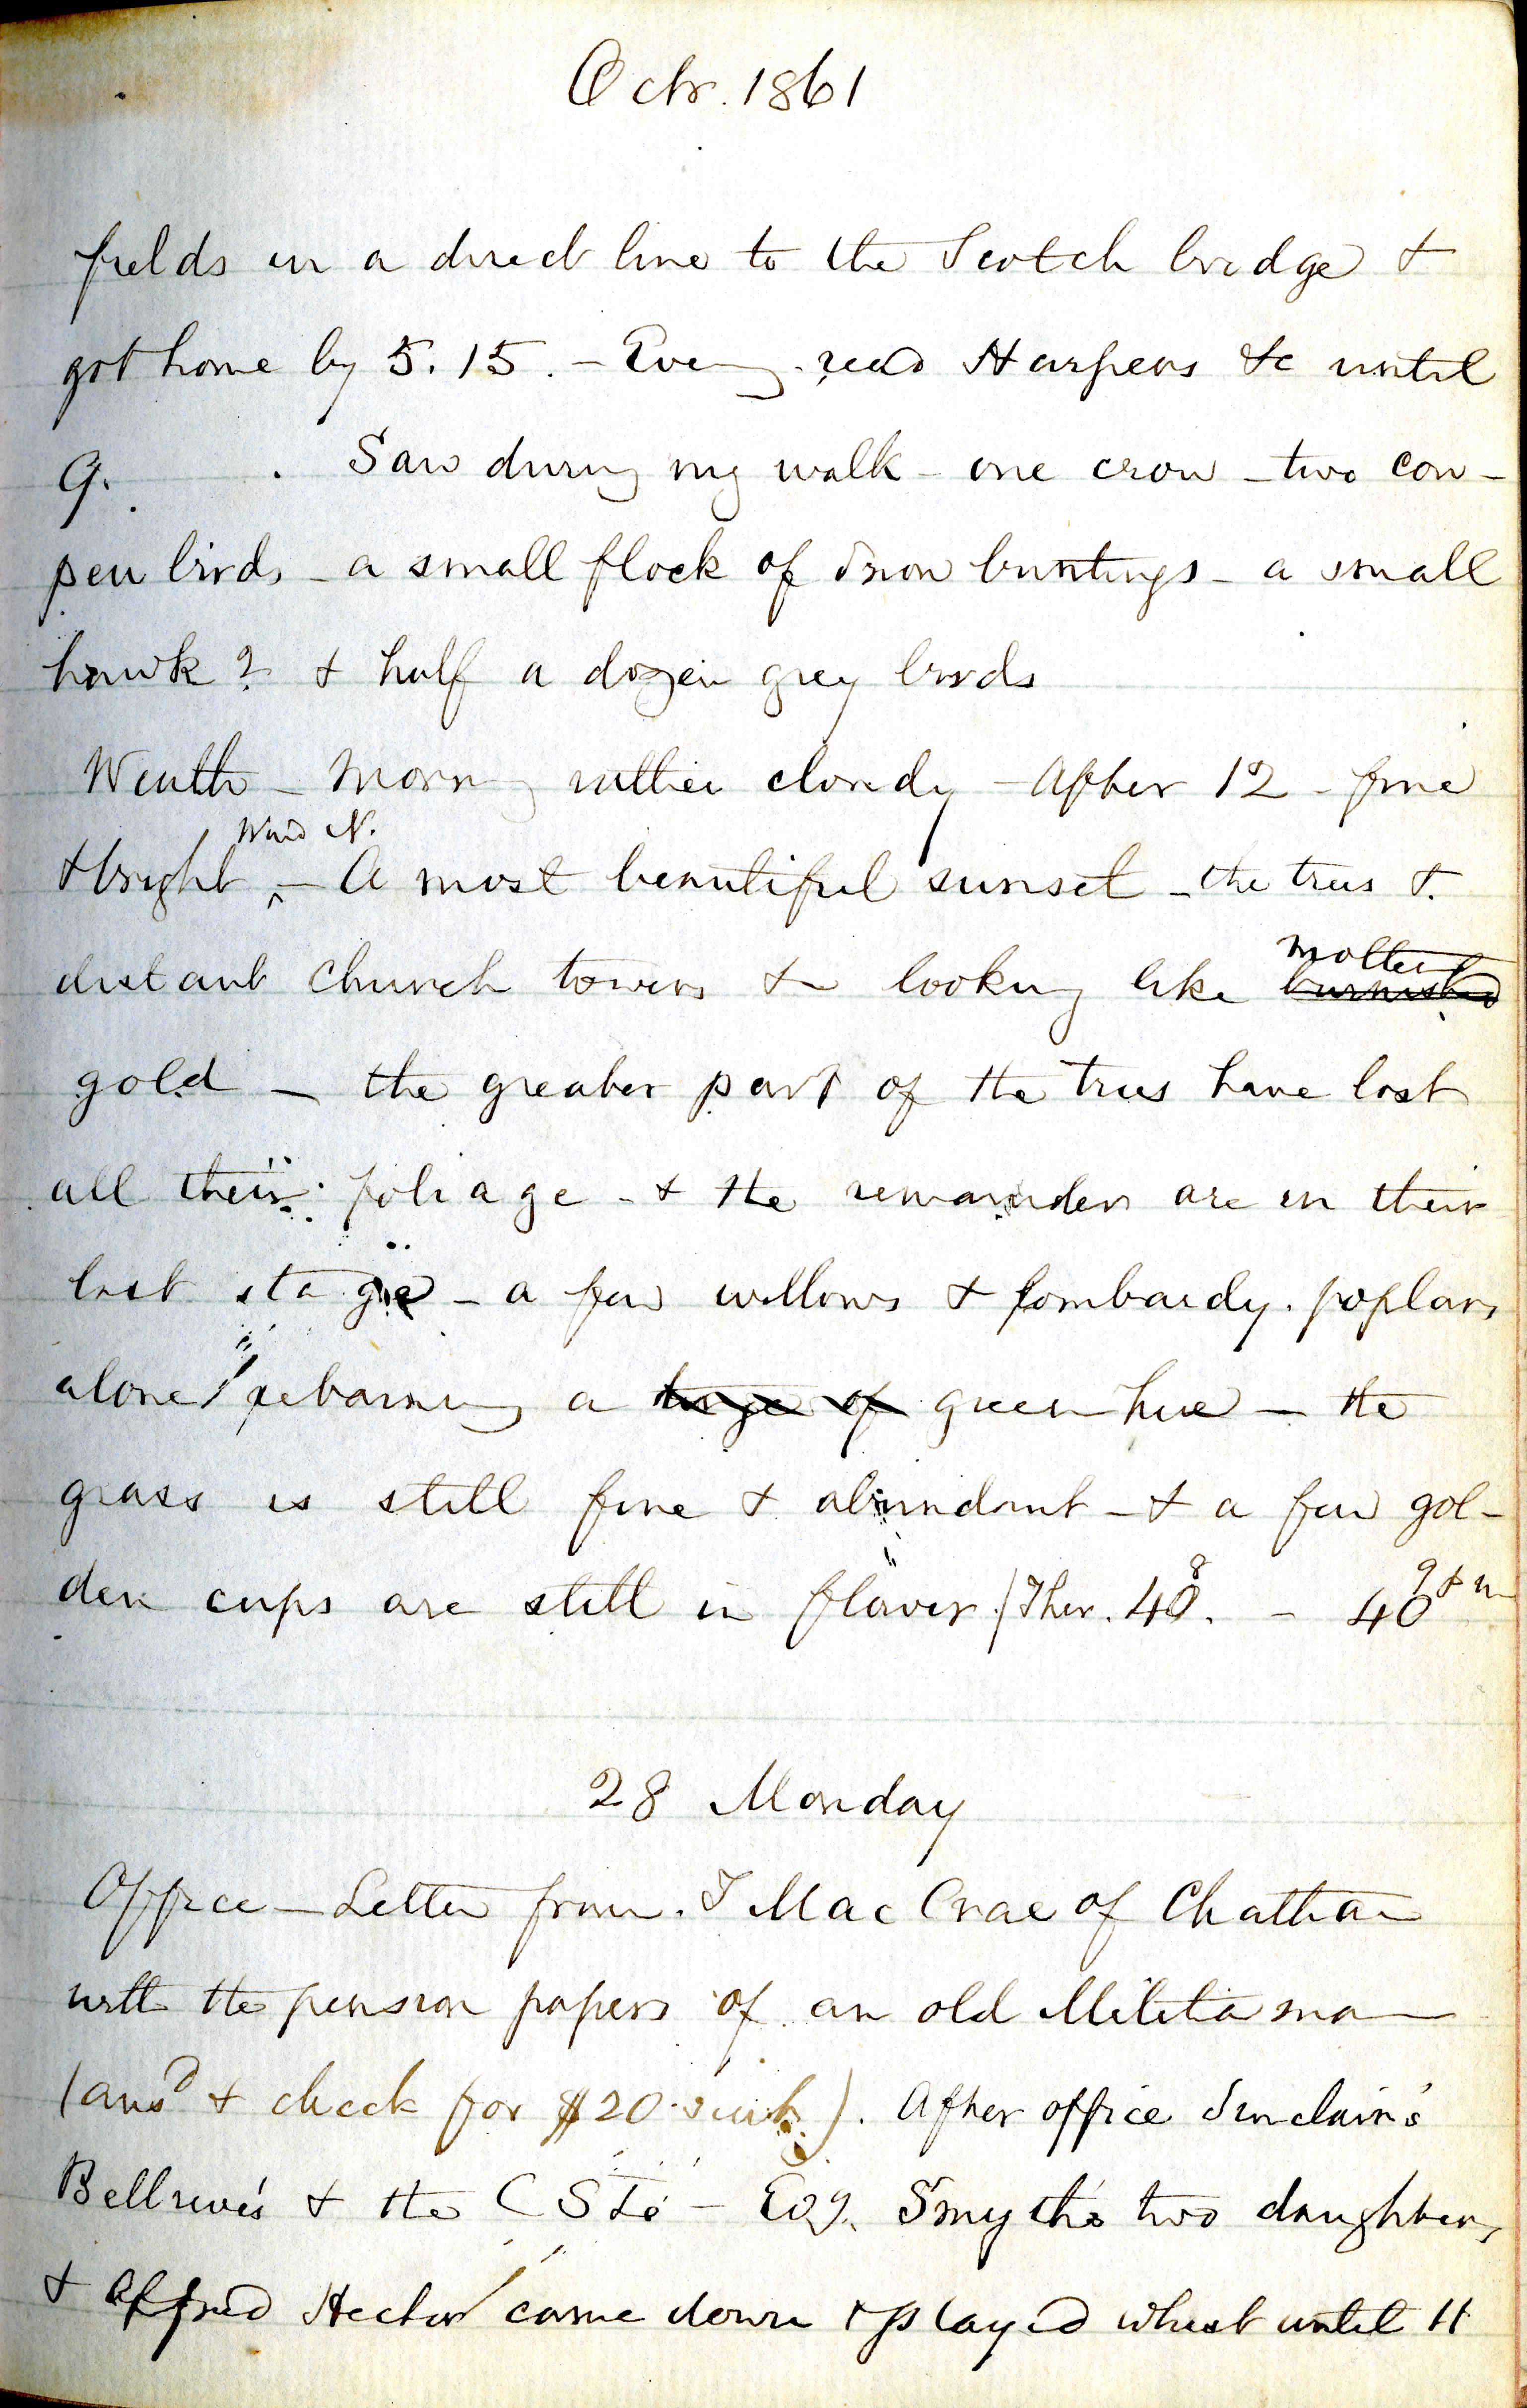 Octr. 1861
fields in a direct line to the Scotch bridge &
got home by 5.15. - Eveng. read Harpers &c until
9. . Saw during my walk - one crow - two cow-
pen birds - a small flock of Snow buntings - a small
hawk? & half a dozen grey birds
Weathr - Morng rather cloudy - After 12 - fine
Wind N.
& bright ^ - A most beautiful sunset - the trees &
molten
distant Church towers &c looking like burnished
gold - the greater part of the trees have lost
all their foliage - & the remainder are in their
last stage - a few willows & lombardy poplars
alone retaining a tinge of green hue - the
grass is still fine & abundant - & a few gol-
den cups are still in flower / Ther. 40 8. - 40 9 &
28 Monday
Office - Letter from T MacCrae of Chatham
with the pension papers of an old Militia man
(ansd & check for $20 sent). After office Sinclair's
Bellrive's & the C S L's - Evg. Smyth's two daughters
& Alfred Hector came down & played whist until 11